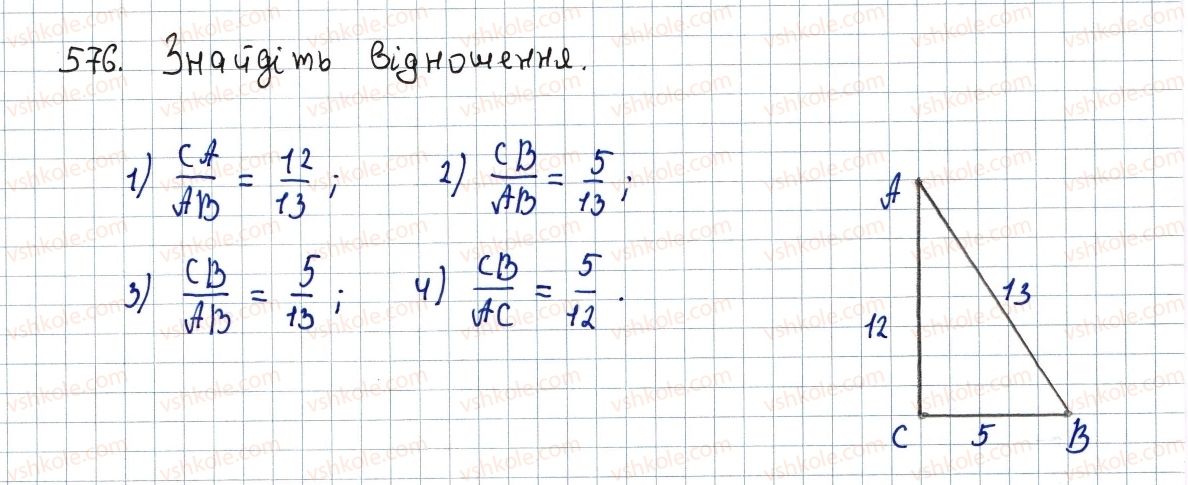 576. Знайдіть відношення.
1) CA/AB = 12/13; 2) CB/AB = 5/13;
3) CB/AB = 5/13; 4) CB/AC = 5/12.
A
13
12
C 5 B
vshkole.com